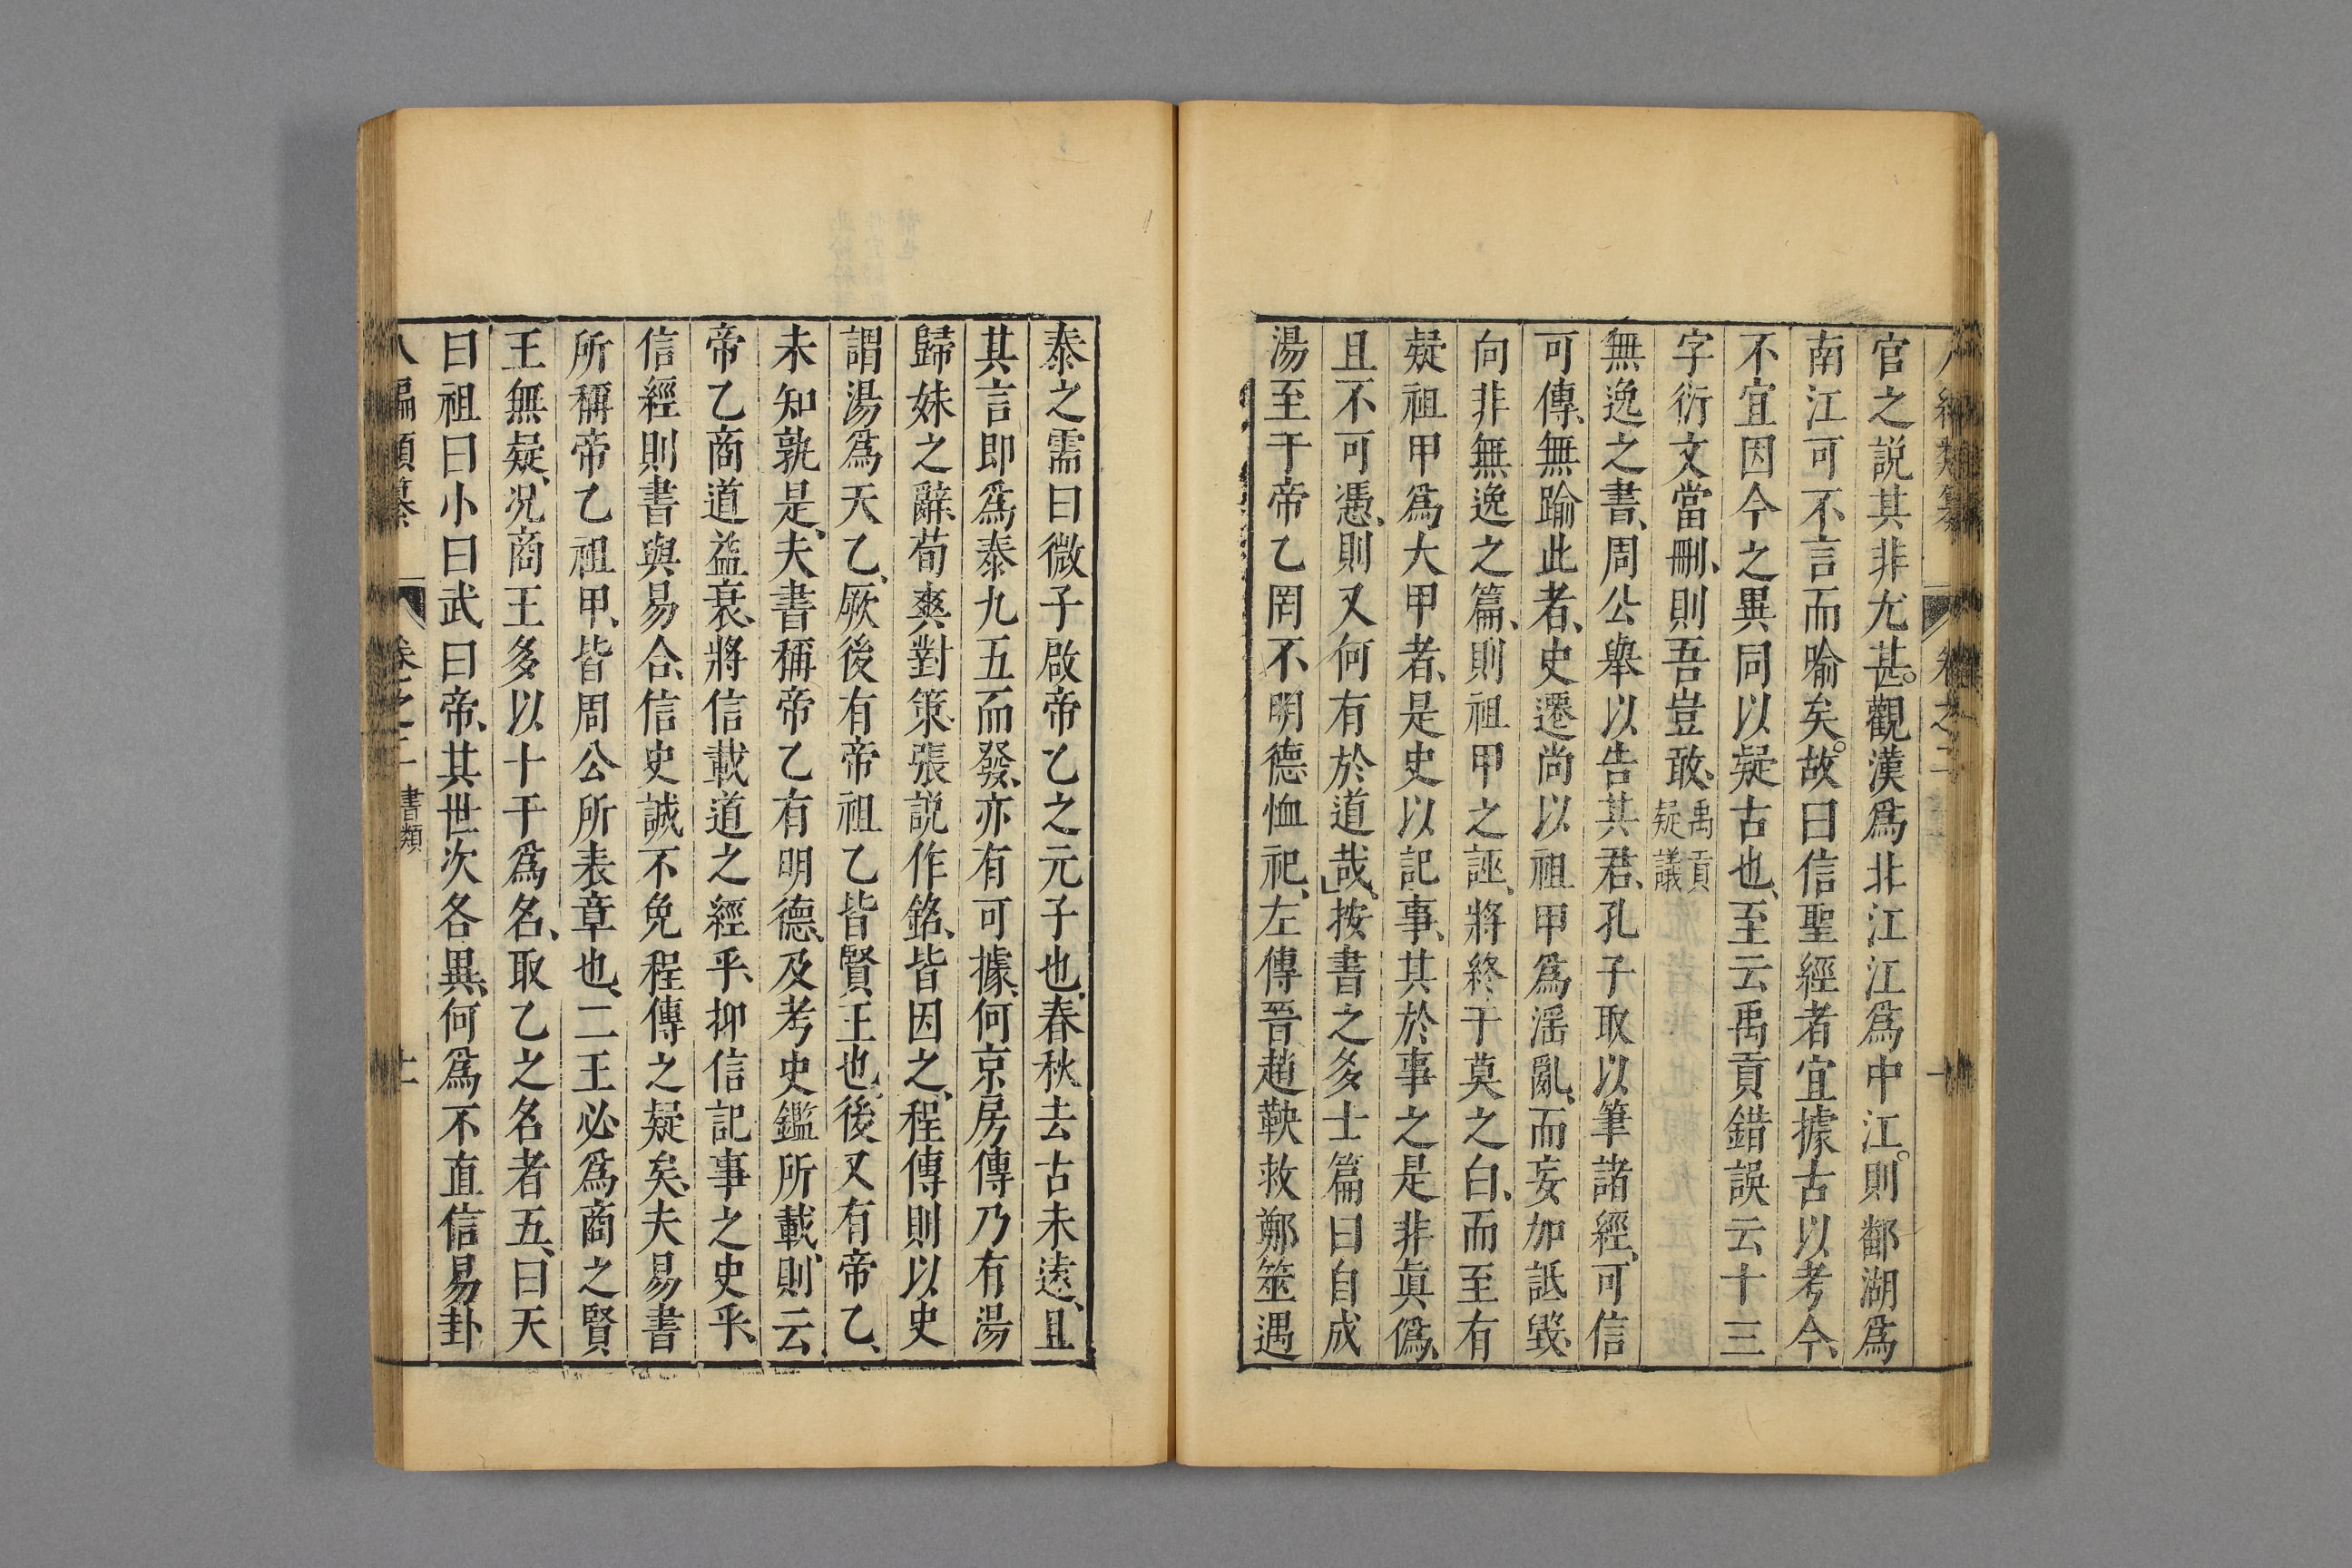 八編類纂 卷之二
官之説其非尤甚觀漢爲北江江爲中江則鄱湖爲
南江可不言而喻矣故曰信聖經者宜據古以考今
不宜因今之異同以疑古也至云禹貢錯誤云十三
字衍文當刪則吾豈敢禹貢疑議
無逸之書周公舉以告其君孔子取以筆諸經可信
可傳無踰此者史遷尚以祖甲爲滛亂而妄加詆毀
向非無逸之篇則祖甲之誣將終于莫之白而至有
疑祖甲爲大甲者是史以記事其於事之是非眞僞
且不可憑則又何有於道哉按書之多士篇曰自成
湯至于帝乙罔不明德恤祀左傳晉趙鞅救鄭筮遇
泰之需曰微子啟帝乙之元子也春秋去古未遠且
其言即爲泰九五而發亦有可據何京房傳乃有湯
歸妹之辭荀爽對策張説作銘皆因之程傳則以史
謂湯爲天乙厥後有帝祖乙皆賢王也後又有帝乙
未知孰是夫書稱帝乙有明德及考史鑑所載則云
帝乙商道益衰將信載道之經乎抑信記事之史乎
信經則書與易合信史誠不免程傳之疑矣夫易書
所稱帝乙祖甲皆周公所表章也二王必爲商之賢
王無疑况商王多以十干爲名取乙之名者五曰天
曰祖曰小曰武曰帝其世次各異何爲不直信易卦
八編類纂 卷之二 書類 十一